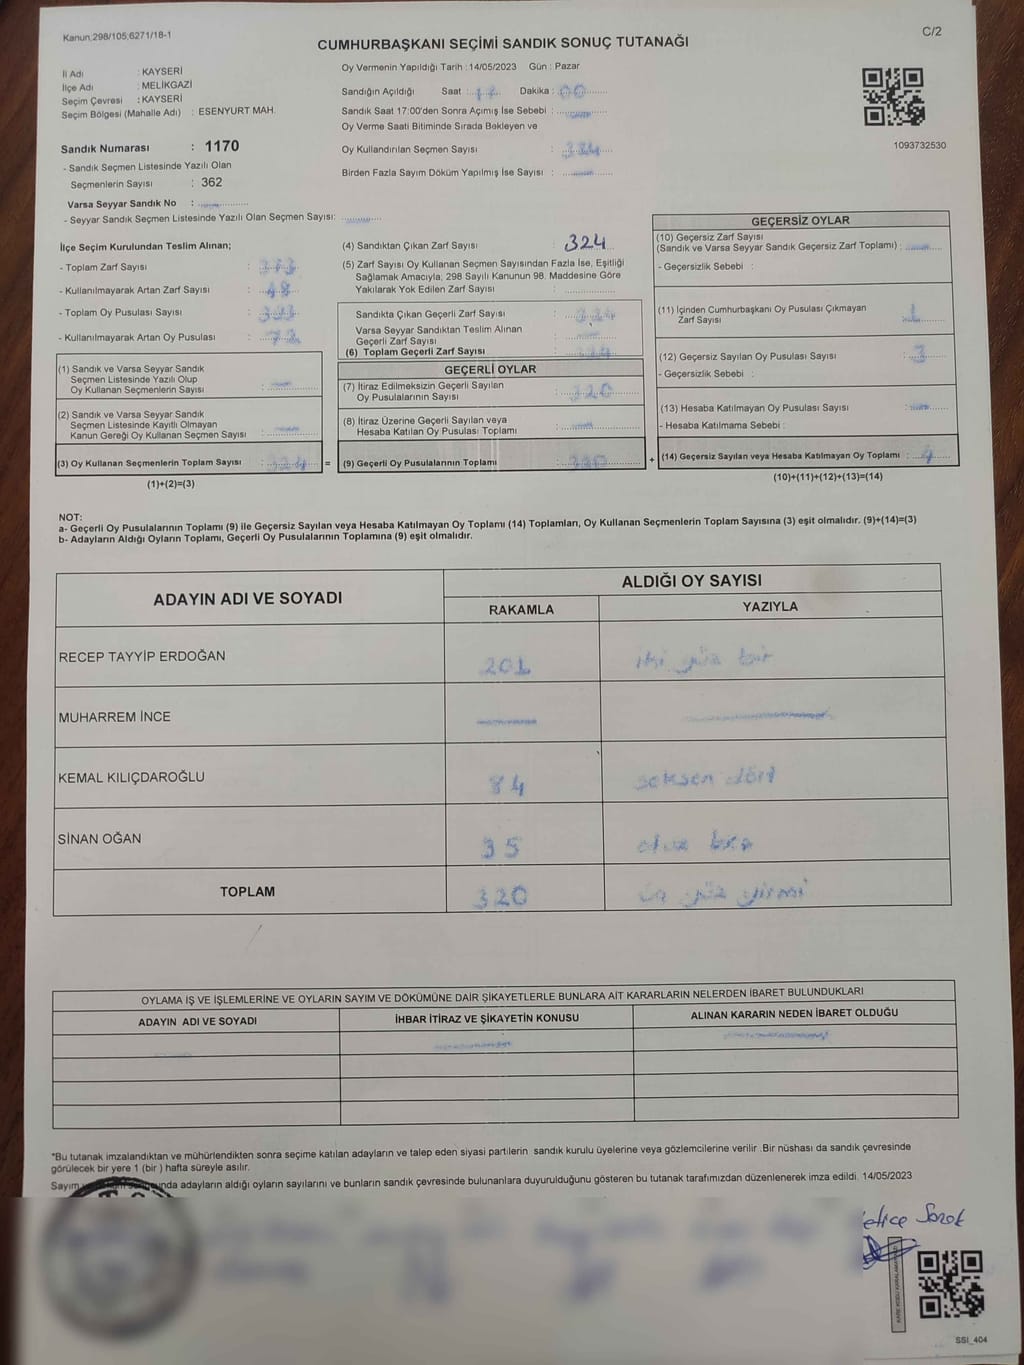 Kanun;298/105;6271/18-1
C/2
CUMHURBAŞKANI SEÇİMİ SANDIK SONUÇ TUTANAĞI
İl Adı : KAYSERİ
İlçe Adı : MELİKGAZİ
Seçim Çevresi : KAYSERİ
Seçim Bölgesi (Mahalle Adı) : ESENYURT MAH.
Sandık Numarası : 1170
- Sandık Seçmen Listesinde Yazılı Olan
Seçmenlerin Sayısı : 362
Varsa Seyyar Sandık No :
- Seyyar Sandık Seçmen Listesinde Yazılı Olan Seçmen Sayısı:
Oy Vermenin Yapıldığı Tarih : 14/05/2023 Gün : Pazar
Sandığın Açıldığı Saat : 17 Dakika : 00
Sandık Saat 17:00'den Sonra Açımış İse Sebebi :
Oy Verme Saati Bitiminde Sırada Bekleyen ve
Oy Kullandırılan Seçmen Sayısı : 324
Birden Fazla Sayım Döküm Yapılmış İse Sayısı :
1093732530
İlçe Seçim Kurulundan Teslim Alınan;
- Toplam Zarf Sayısı :
- Kullanılmayarak Artan Zarf Sayısı : 48
- Toplam Oy Pusulası Sayısı :
- Kullanılmayarak Artan Oy Pusulası : 72
(1) Sandık ve Varsa Seyyar Sandık
Seçmen Listesinde Yazılı Olup
Oy Kullanan Seçmenlerin Sayısı :
(2) Sandık ve Varsa Seyyar Sandık
Seçmen Listesinde Kayıtlı Olmayan
Kanun Gereği Oy Kullanan Seçmen Sayısı :
(3) Oy Kullanan Seçmenlerin Toplam Sayısı : 324 =
(1)+(2)=(3)
(4) Sandıktan Çıkan Zarf Sayısı : 324
(5) Zarf Sayısı Oy Kullanan Seçmen Sayısından Fazla İse, Eşitliği
Sağlamak Amacıyla; 298 Sayılı Kanunun 98. Maddesine Göre
Yakılarak Yok Edilen Zarf Sayısı :
Sandıkta Çıkan Geçerli Zarf Sayısı : 324
Varsa Seyyar Sandıktan Teslim Alınan
Geçerli Zarf Sayısı :
(6) Toplam Geçerli Zarf Sayısı : 324
GEÇERLİ OYLAR
(7) İtiraz Edilmeksizin Geçerli Sayılan
Oy Pusulalarının Sayısı : 320
(8) İtiraz Üzerine Geçerli Sayılan veya
Hesaba Katılan Oy Pusulası Toplamı :
(9) Geçerli Oy Pusulalarının Toplamı : 320 +
GEÇERSİZ OYLAR
(10) Geçersiz Zarf Sayısı
(Sandık ve Varsa Seyyar Sandık Geçersiz Zarf Toplamı) :
- Geçersizlik Sebebi :
(11) İçinden Cumhurbaşkanı Oy Pusulası Çıkmayan
Zarf Sayısı : 1
(12) Geçersiz Sayılan Oy Pusulası Sayısı : 3
- Geçersizlik Sebebi :
(13) Hesaba Katılmayan Oy Pusulası Sayısı :
- Hesaba Katılmama Sebebi :
(14) Geçersiz Sayılan veya Hesaba Katılmayan Oy Toplamı : 4
(10)+(11)+(12)+(13)=(14)
NOT:
a- Geçerli Oy Pusulalarının Toplamı (9) ile Geçersiz Sayılan veya Hesaba Katılmayan Oy Toplamı (14) Toplamları, Oy Kullanan Seçmenlerin Toplam Sayısına (3) eşit olmalıdır. (9)+(14)=(3)
b- Adayların Aldığı Oyların Toplamı, Geçerli Oy Pusulalarının Toplamına (9) eşit olmalıdır.
ADAYIN ADI VE SOYADI
ALDIĞI OY SAYISI
RAKAMLA YAZIYLA
RECEP TAYYİP ERDOĞAN 201 iki yüz bir
MUHARREM İNCE
KEMAL KILIÇDAROĞLU 84 seksen dört
SİNAN OĞAN 35 otuz beş
TOPLAM 320 üç yüz yirmi
OYLAMA İŞ VE İŞLEMLERİNE VE OYLARIN SAYIM VE DÖKÜMÜNE DAİR ŞİKAYETLERLE BUNLARA AİT KARARLARIN NELERDEN İBARET BULUNDUKLARI
ADAYIN ADI VE SOYADI İHBAR İTİRAZ VE ŞİKAYETİN KONUSU ALINAN KARARIN NEDEN İBARET OLDUĞU
"Bu tutanak imzalandıktan ve mühürlendikten sonra seçime katılan adayların ve talep eden siyasi partilerin sandık kurulu üyelerine veya gözlemcilerine verilir .Bir nüshası da sandık çevresinde
görülecek bir yere 1 (bir ) hafta süreyle asılır.
Sayım adayların aldığı oyların sayılarını ve bunların sandık çevresinde bulunanlara duyurulduğunu gösteren bu tutanak tarafımızdan düzenlenerek imza edildi. 14/05/2023
SSI_404